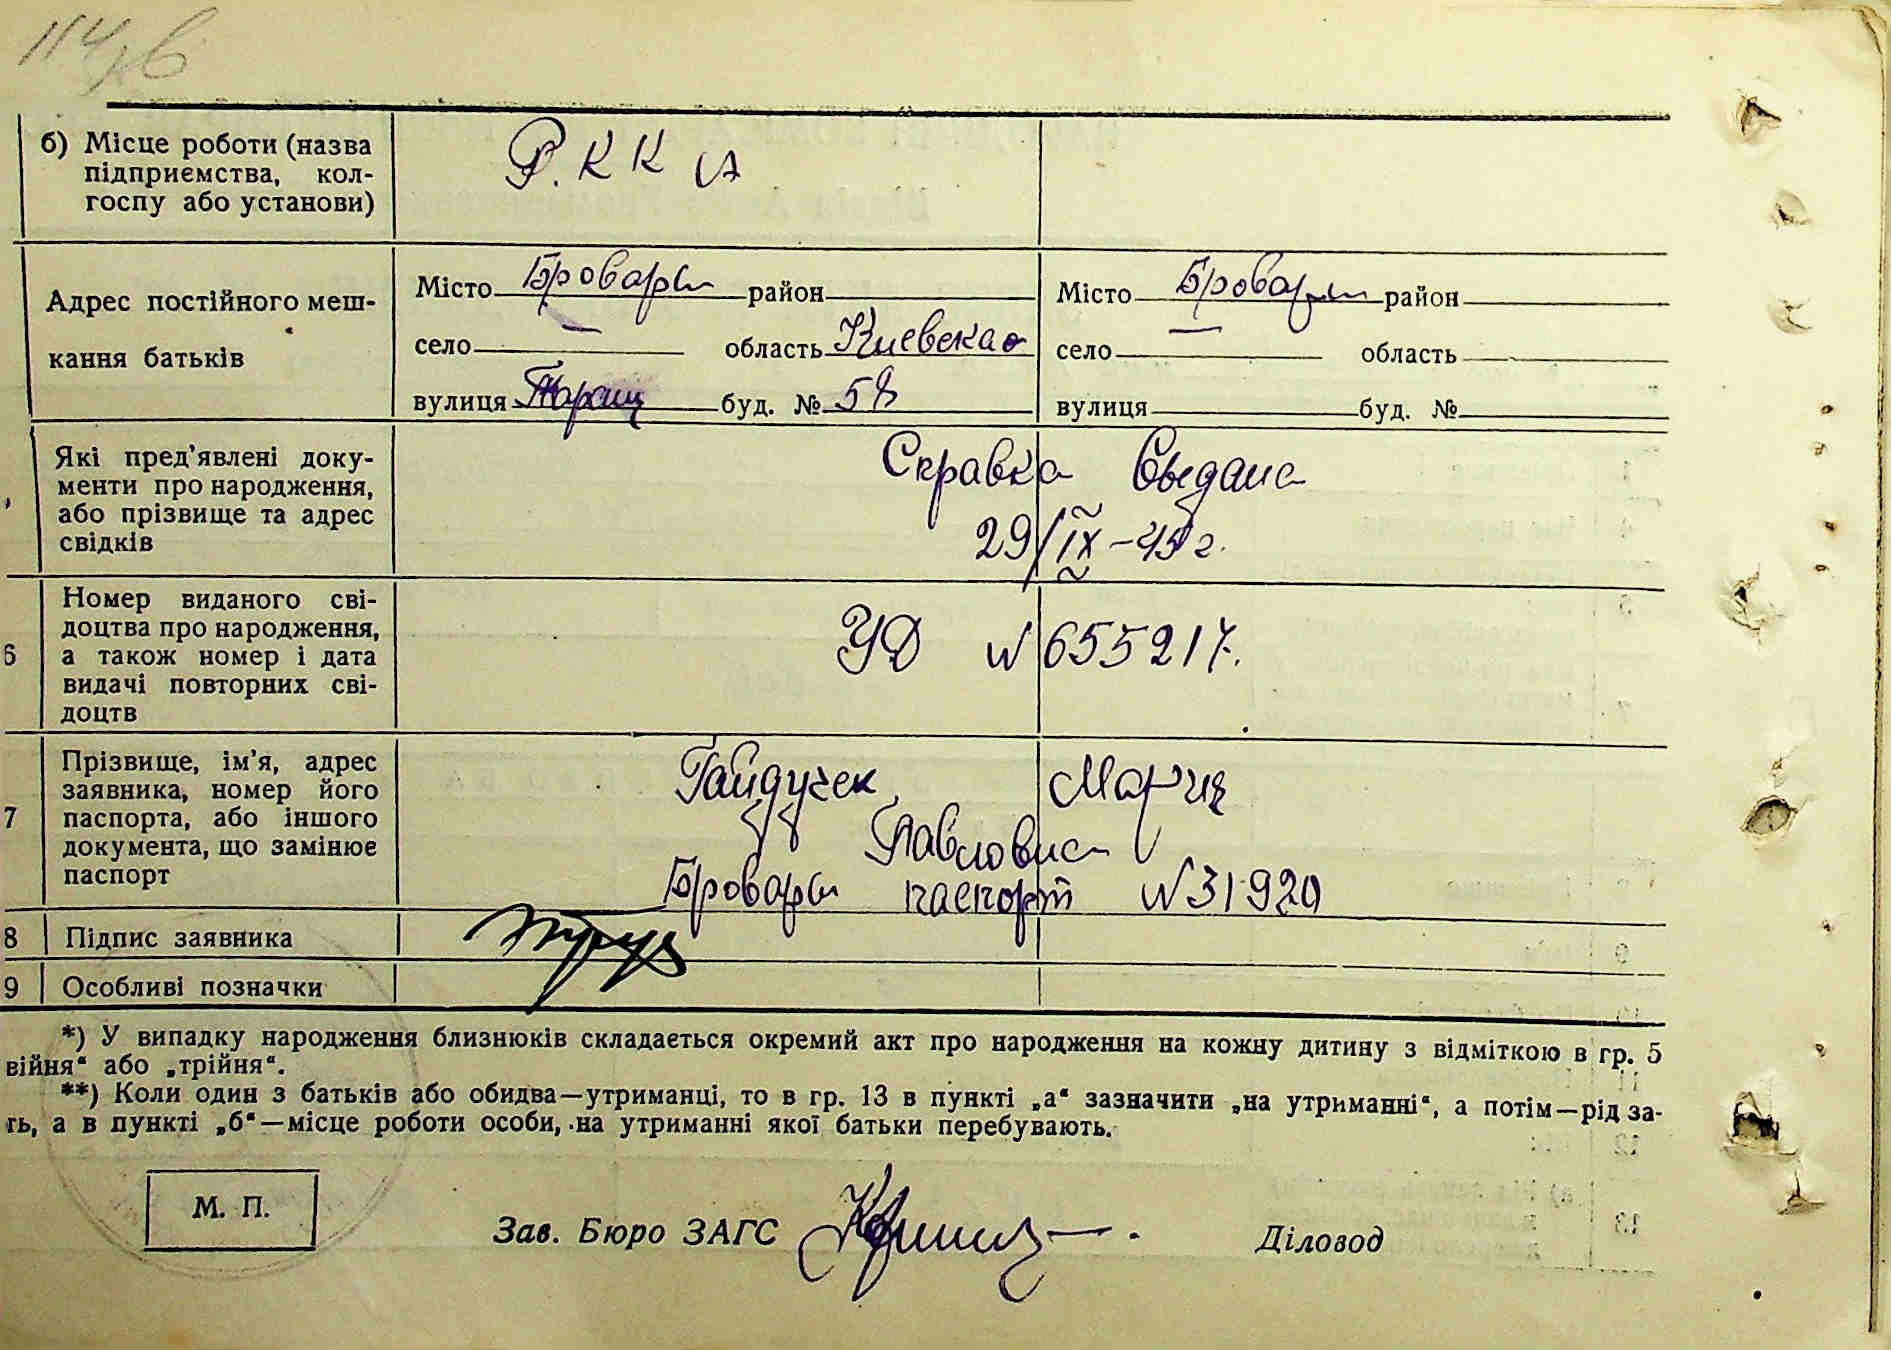 б) Місце роботи (назва
підприємства, кол-
госпу або установи)
Р.ККА
Адрес постійного меш-
кання батьків
Місто Бровары район
село — область Киевская
вулиця буд. № 58
Місто Бровары район
село — область
вулиця буд. №
Які пред’явлені доку-
менти про народження,
або прізвище та адрес
свідків
Справка Выдана
29/IX-45 г.
6 Номер виданого сві-
доцтва про народження,
а також номер і дата
видачі повторних сві-
доцтв
УД N 655217.
7 Прізвище, ім’я, адрес
заявника, номер його
паспорта, або іншого
документа, що замінює
паспорт
Гайдучек Мария
Павловна
Бровары паспорт N 31920
8 Підпис заявника
9 Особливі позначки
*) У випадку народження близнюків складається окремий акт про народження на кожну дитину з відміткою в гр. 5
війня“ або „трійня“.
**) Коли один з батьків або обидва—утриманці, то в гр. 13 в пункті „а“ зазначити „на утриманні“, а потім—рід за-
ть, а в пункті „б“—місце роботи особи, на утриманні якої батьки перебувають.
М. П.
Зав. Бюро ЗАГС
Діловод